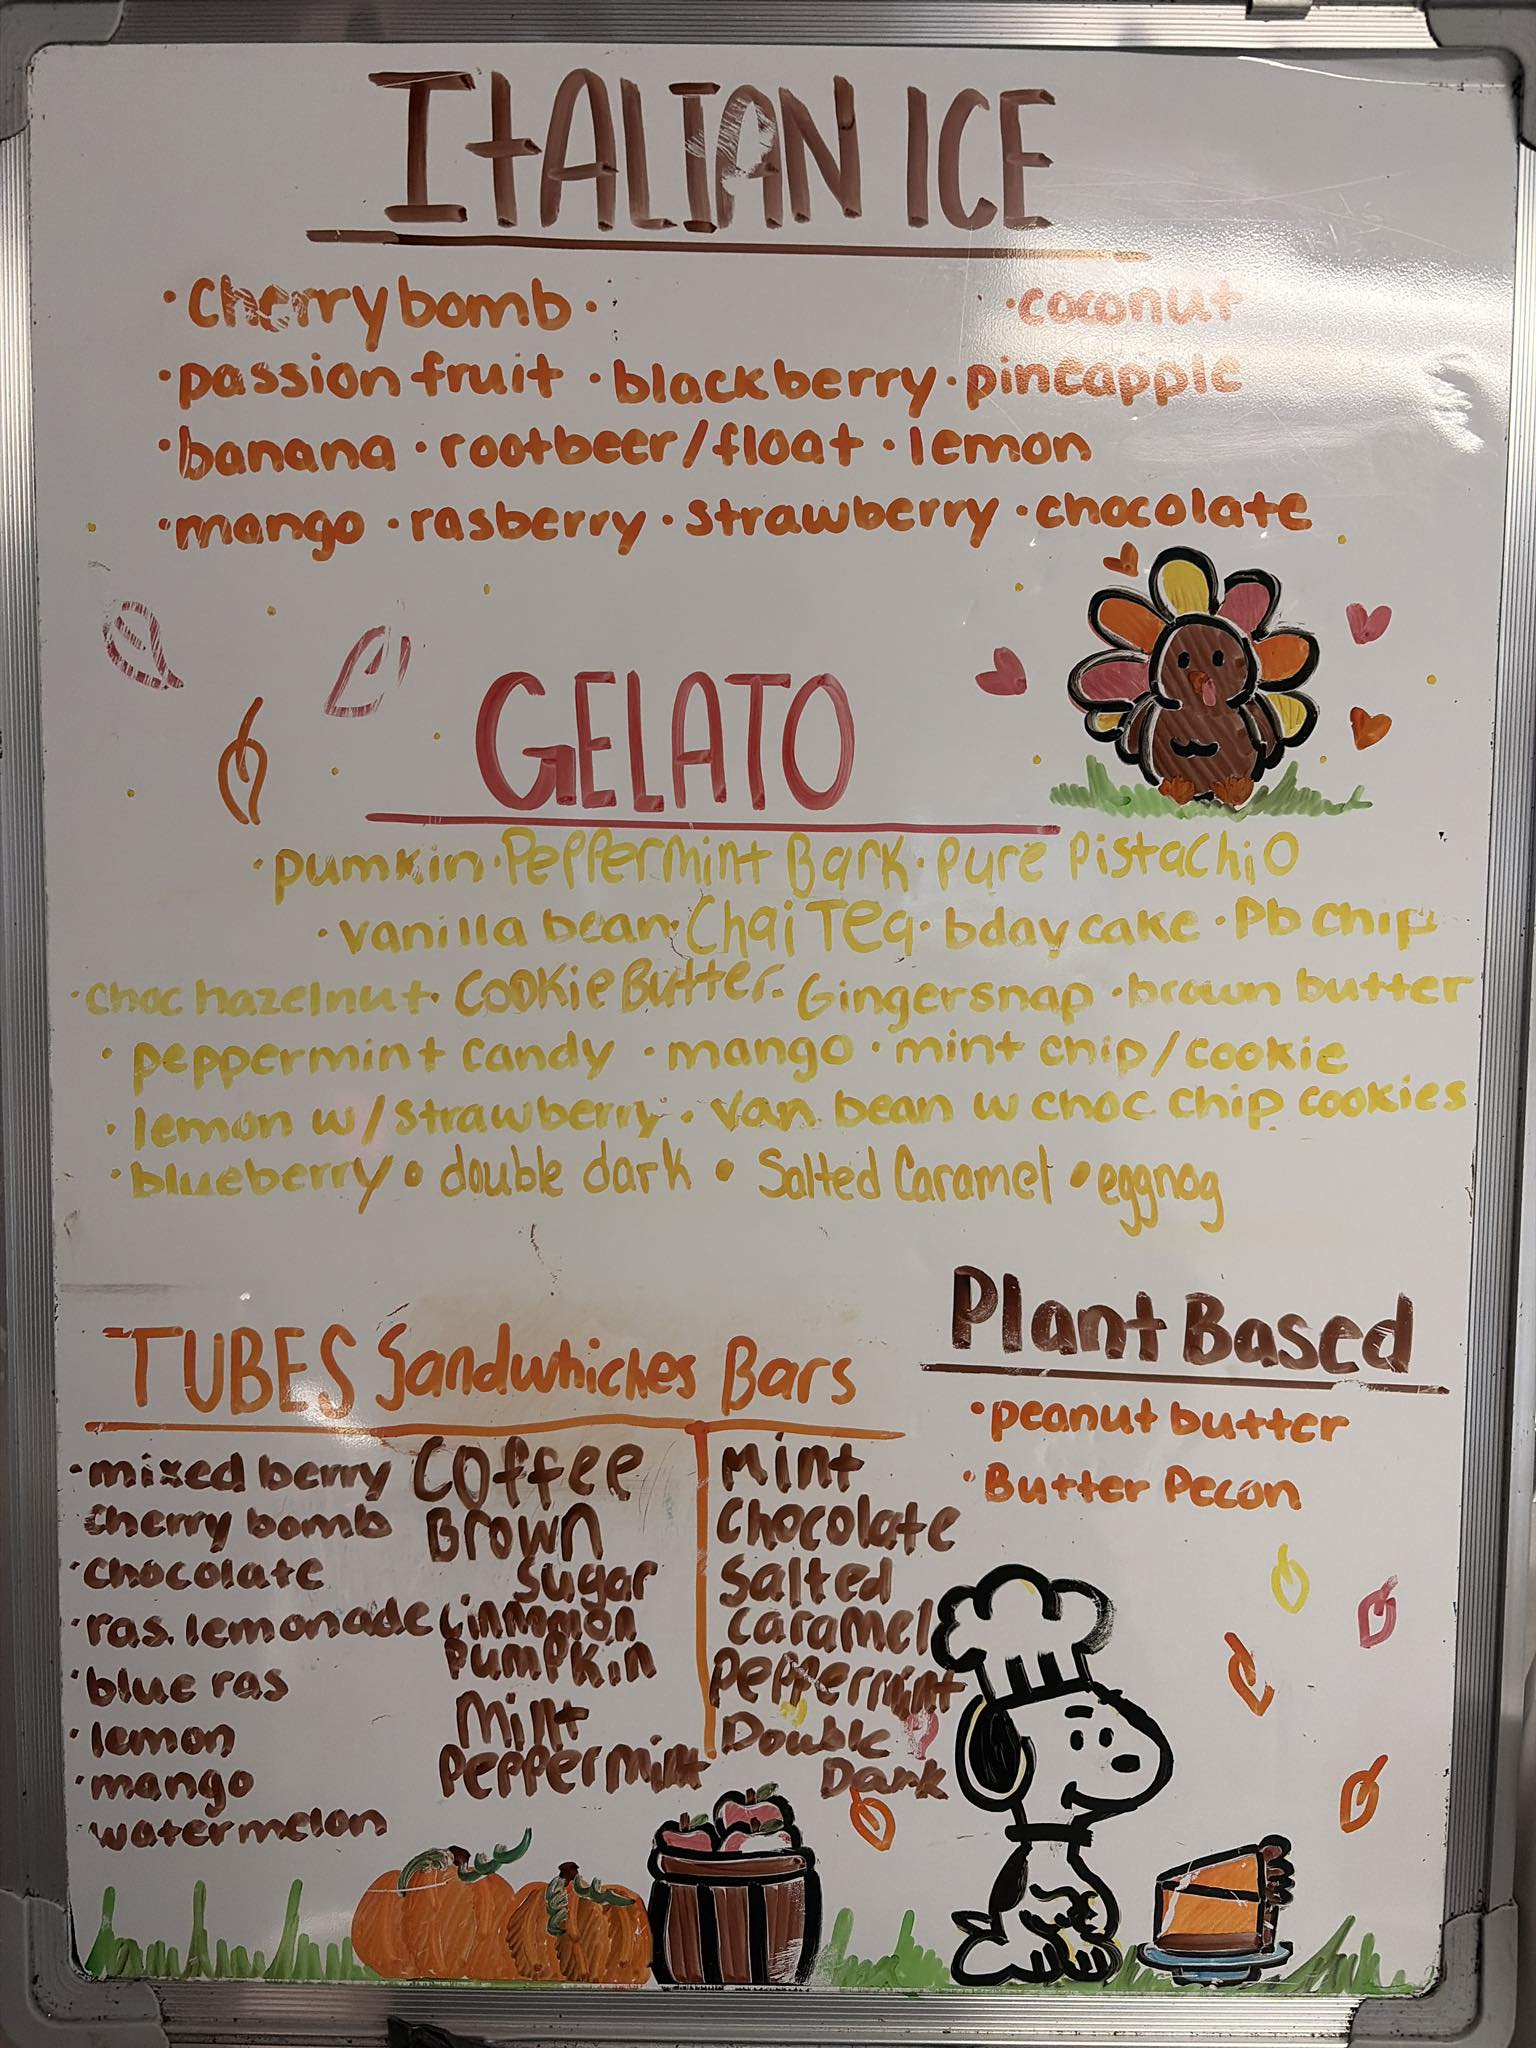 ITALIAN ICE
·cherry bomb· ·coconut
·passion fruit ·blackberry·pineapple
·banana ·rootbeer/float ·lemon
·mango ·rasberry ·strawberry ·chocolate
GELATO
·pumkin·Peppermint Bark·Pure Pistachio
·vanilla bean·Chai Tea·bday cake ·Pb chip
·choc hazelnut· Cookie Butter· Gingersnap ·brown butter
·peppermint candy ·mango ·mint chip/cookie
·lemon w/strawberry ·van bean w choc chip cookies
·blueberry • double dark • Salted Caramel •eggnog
Plant Based
·peanut butter
·Butter Pecon
TUBES Sandwhiches Bars
·mixed berry
cherry bomb
·chocolate
·ras. lemonade
·blue ras
·lemon
·mango
·watermelon
Coffee
Brown
Sugar
Cinnamon
Pumpkin
Mint
Peppermint
Mint
Chocolate
Salted
Caramel
Peppermint
Double
Dark